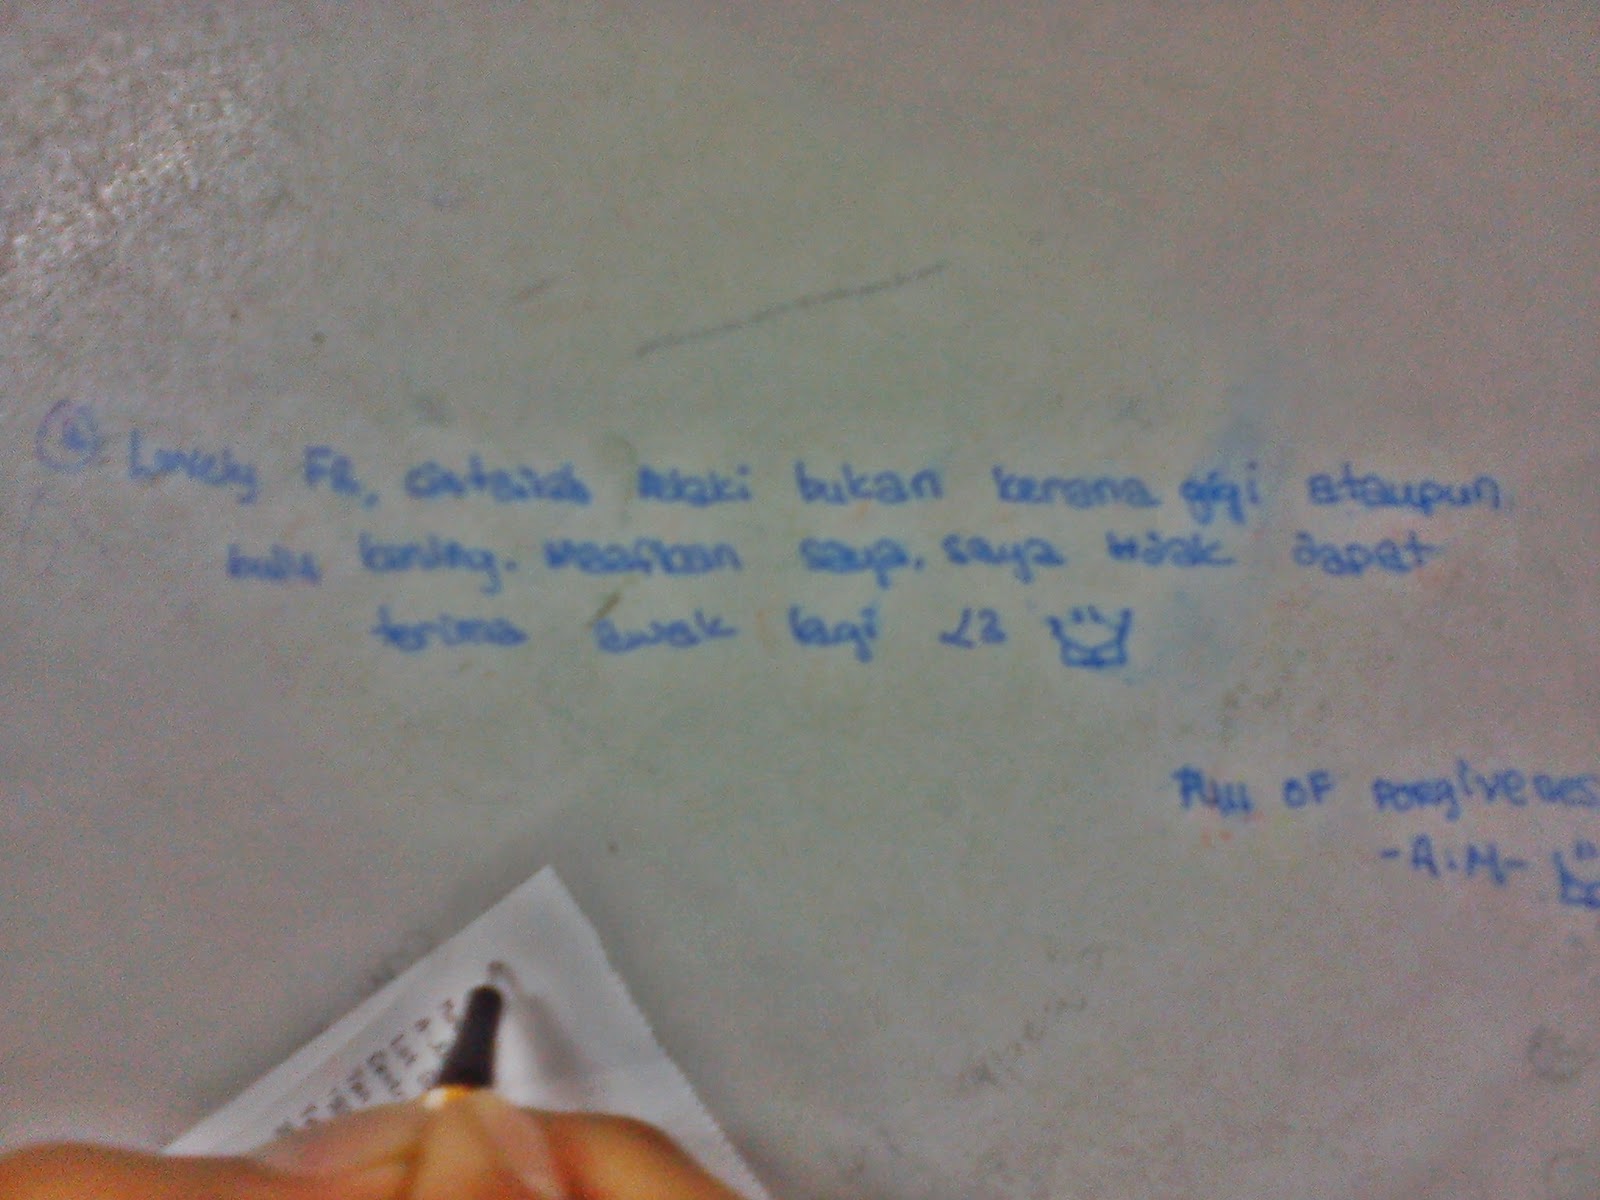 Lovely FR, cintailah lelaki bukan kerana gigi ataupun
bulu kening. Maafkan saya, saya tidak dapat
terima awak lagi <3
Full OF Forgivenes
-A.M-